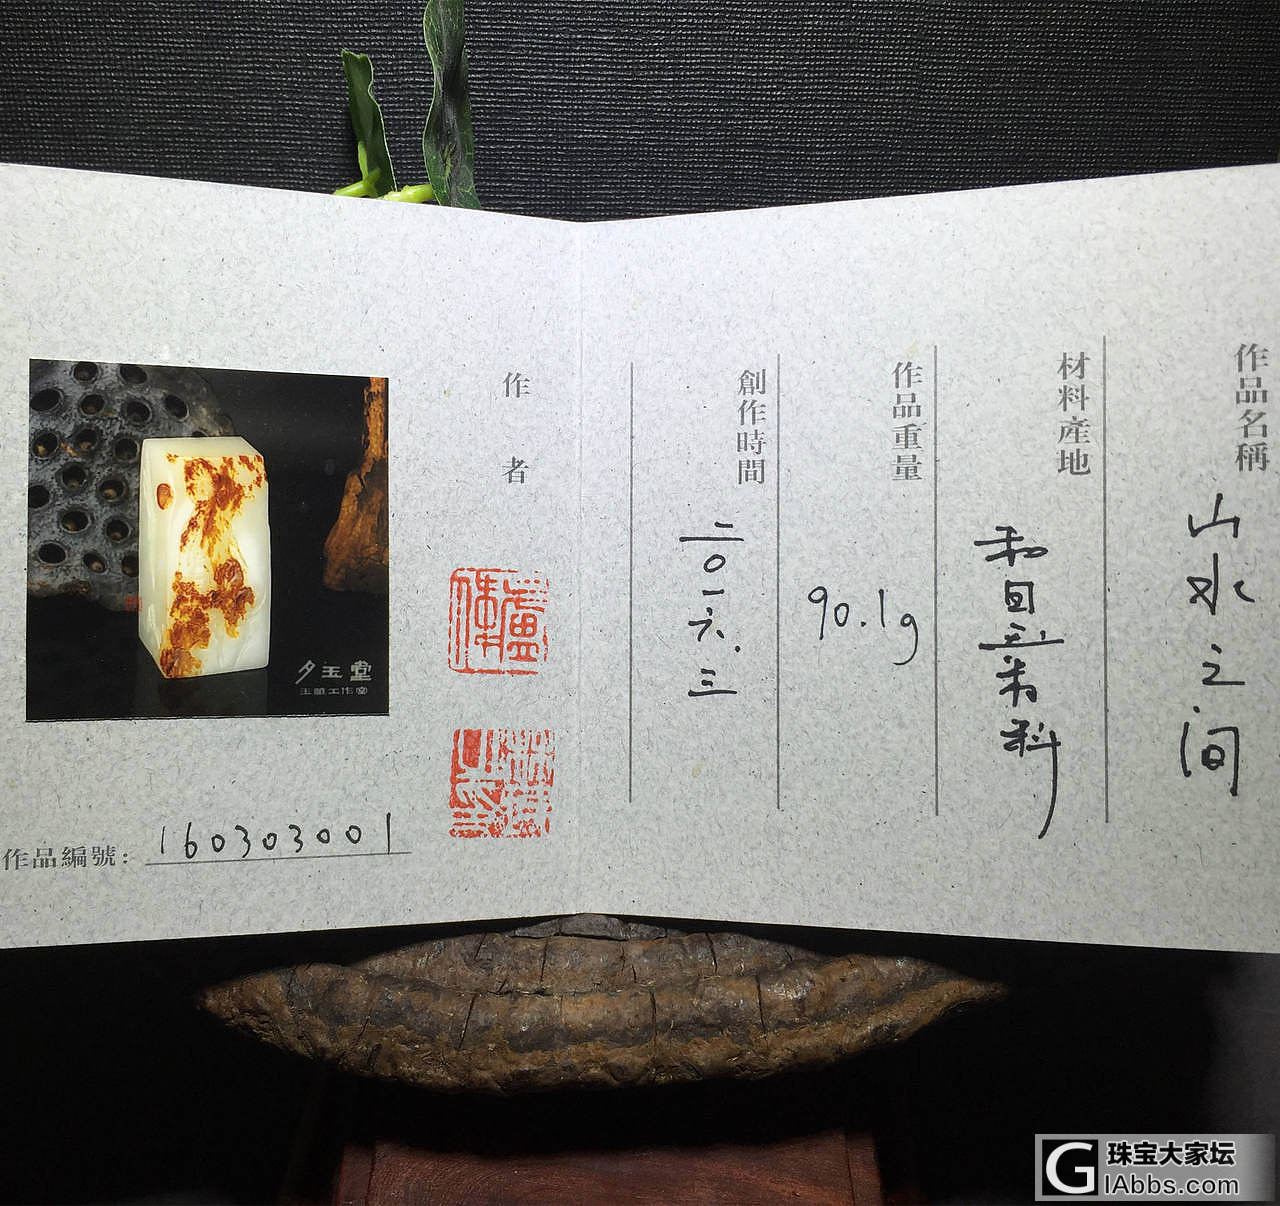 作品名稱
山水之间
材料產地
和田
料
作品重量
90.1g
創作時間
二〇一六.三
作者
夕玉堂
玉雕工作室
作品編號: 160303001
珠宝大家坛
GIAbbs.com